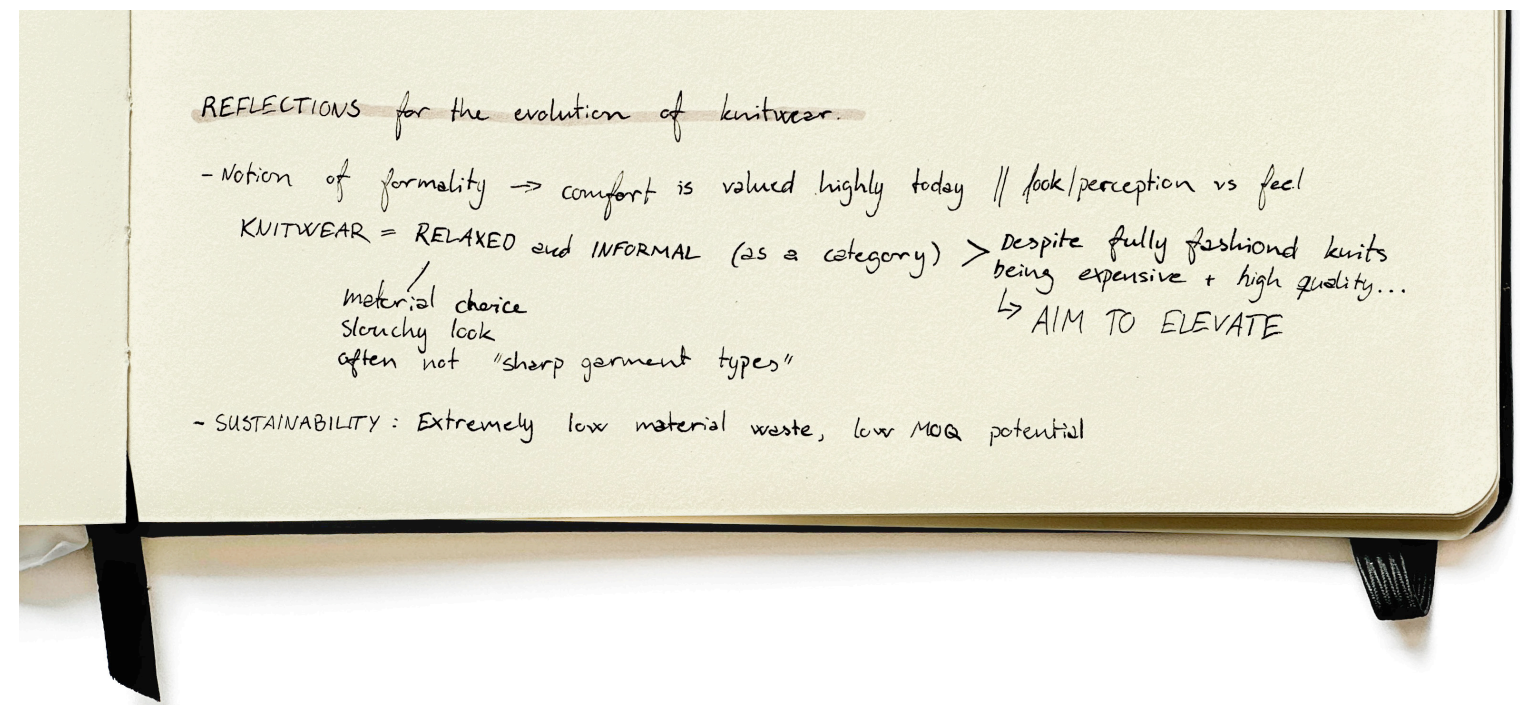 REFLECTIONS for the evolution of knitwear.
- Notion of formality → comfort is valued highly today || look/perception vs feel
KNITWEAR = RELAXED and INFORMAL (as a category) > Despite fully fashiond knits
being expensive + high quality...
↳ AIM TO ELEVATE
material choice
slouchy look
often not "sharp garment types"
- SUSTAINABILITY : Extremely low material waste, low MOQ potential